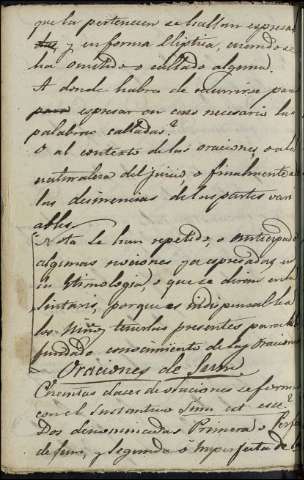 que la pertenecen se hallan espresa
das, y en forma elíptica, cuando se
ha omitido o callado alguna.
A donde habra de recurrirse para
espresar en caso necesario las
palabras calladas?
O al contexto de las oraciones, o a la
naturaleza del juicio, o finalmente a
las desinencias de las partes vari
ables.
Nota Se han repetido, o anticipado
algunas nociones ya espresadas
en Etimologia, o que se diran en la
Sintaxis, porque es indispensable a
los niños tenerlas presentes para el
fundado conocimiento de las oraciones
Oraciones de Sum
Cuantas clases de oraciones se forman
con el Sustantivo Sum est esse?
Dos denominadas Primera o Perfecta
de Sum, y segunda o Imperfecta de